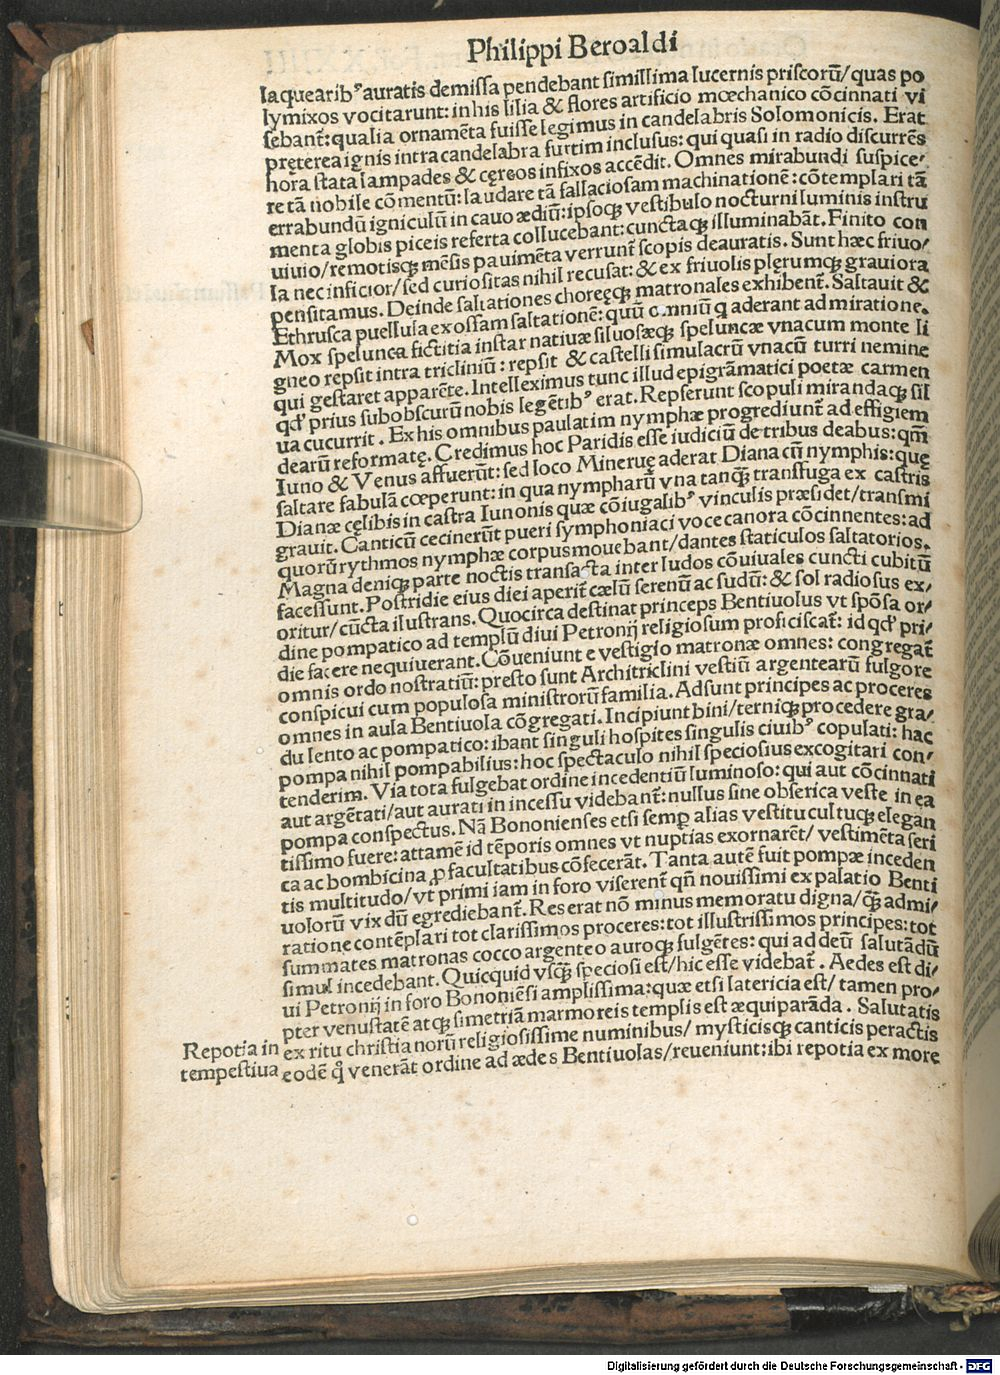 Philippi Beroaldi
laquearibꝰ auratis demiſſa pendebant ſimillima lucernis priſcorū/quas po
lymixos vocitarunt: in his lilia & flores artificio mœchanico cōcinnati vi
ſebant̄: qualia ornamēta fuiſſe legimus in candelabris Solomonicis. Erat
pręterea ignis intra candelabra furtim incluſus: qui quaſi in radio diſcurrēs
hora ſtata lampades & cęreos infixos accēdit. Omnes mirabundi ſuſpice⸗
re tā nobile cōmentū: laudare tā fallacioſam machinationē: cōtemplari tā
errabundū igniculū in cauo ædiū: ipſoqꝫ veſtibulo nocturni luminis inſtru
menta globis piceis referta collucebant: cunctaqꝫ illuminabāt. Finito con
uiuio/remotiſqꝫ mēſis pauimēta verrunt̄ ſcopis deauratis. Sunt hæc friuo⸗
la nec inficior/ſed curioſitas nihil recuſat: & ex friuolis plęrumqꝫ grauiora
penſitamus. Deinde ſaltationes choreęqꝫ matronales exhibent̄. Saltauit &
Ethruſca puellula exoſſam ſaltationē: quū omniū q̄ aderant admiratione.
Mox ſpelunca fictitia inſtar natiuæ ſiluoſæqꝫ ſpeluncæ vnacum monte li
gneo repſit intra tricliniū: repſit & caſtelli ſimulacrū vnacū turri nemine
qui geſtaret apparēte. Intelleximus tunc illud epigrāmatici poetæ carmen
qd̓ prius ſubobſcurū nobis legētibꝰ erat. Repſerunt ſcopuli mirandaqꝫ ſil
ua cucurrit. Ex his omnibus paulatim nymphæ progrediunt̄ ad effigiem
dearū reformatę. Credimus hoc Paridis eſſe iudiciū de tribus deabus: qm̄
Iuno & Venus affuerūt: ſed loco Mineruę aderat Diana cū nymphis: quę
ſaltare fabulā cœperunt: in qua nympharū vna tanqꝫ̄ tranſfuga ex caſtris
Dianæ cęlibis in caſtra Iunonis quæ cōiugalibꝰ vinculis præſidet/tranſmi
grauit. Canticū cecinerūt pueri ſymphoniaci voce canora cōcinnentes: ad
quorū rythmos nymphæ corpus mouebant/dantes ſtaticulos ſaltatorios.
Magna deniqꝫ parte noctis tranſacta inter ludos cōuiuales cuncti cubitū
faceſſunt. Poſtridie eius diei aperit̄ cælū ſerenū ac ſudū: & ſol radioſus ex⸗
oritur/cūcta iluſtrans. Quocirca deſtinat princeps Bentiuolus vt ſpōſa or⸗
dine pompatico ad templū diui Petronij religioſum proficiſcat̄: id qd̓ pri⸗
die facere nequiuerant. Cōueniunt e veſtigio matronæ omnes: congregat̄
omnis ordo noſtratiū: preſto ſunt Architriclini veſtiū argentearū fulgore
conſpicui cum populoſa miniſtrorū familia. Adſunt principes ac proceres
omnes in aula Bentiuola cōgregati. Incipiunt bini/terniqꝫ procedere gra⸗
du lento ac pompatico: ibant ſinguli hoſpites ſingulis ciuibꝰ copulati: hac
pompa nihil pompabilius: hoc ſpectaculo nihil ſpecioſius excogitari con⸗
tenderim. Via tota fulgebat ordine incedentiū luminoſo: qui aut cōcinnati
aut argētati/aut aurati in inceſſu videbant̄: nullus ſine obſerica veſte in ea
pompa conſpectus. Nā Bononienſes etſi ſemꝑ alias veſtitu cultuqꝫ elegan
tiſſimo fuere: attamē id tēporis omnes vt nuptias exornarēt/ veſtimēta ſeri
ca ac bombicina ꝓ facultatibus cōfecerāt. Tanta autē fuit pompæ inceden
tis multitudo/vt primi iam in foro viſerent̄ qn̄ nouiſſimi ex palatio Benti
uolorū vix dū egrediebant̄. Res erat nō minus memoratu digna/qꝫ̄ admi⸗
ratione contēplari tot clariſſimos proceres: tot illuſtriſſimos principes: tot
ſummates matronas cocco argenteo auroqꝫ fulgētes: qui ad deū ſalutādū
ſimul incedebant. Quicquid vſqꝫ̄ ſpecioſi eſt/hic eſſe videbat̄. Aedes eſt di⸗
ui Petronij in foro Bononiēſi ampliſſima: quæ etſi latericia eſt/ tamen pro⸗
pter venuſtatē atqꝫ ſimetriā marmoreis templis eſt æquiparāda. Salutatis
ex ritu chriſtianorū religioſiſſime numinibus/ myſticiſqꝫ canticis peractis
eodē q̊ venerāt ordine ad ædes Bentiuolas/reueniunt: ibi repotia ex more
Repotia in
tempeſtiua
Digitalisierung gefördert durch die Deutsche Forschungsgemeinschaft - DFG